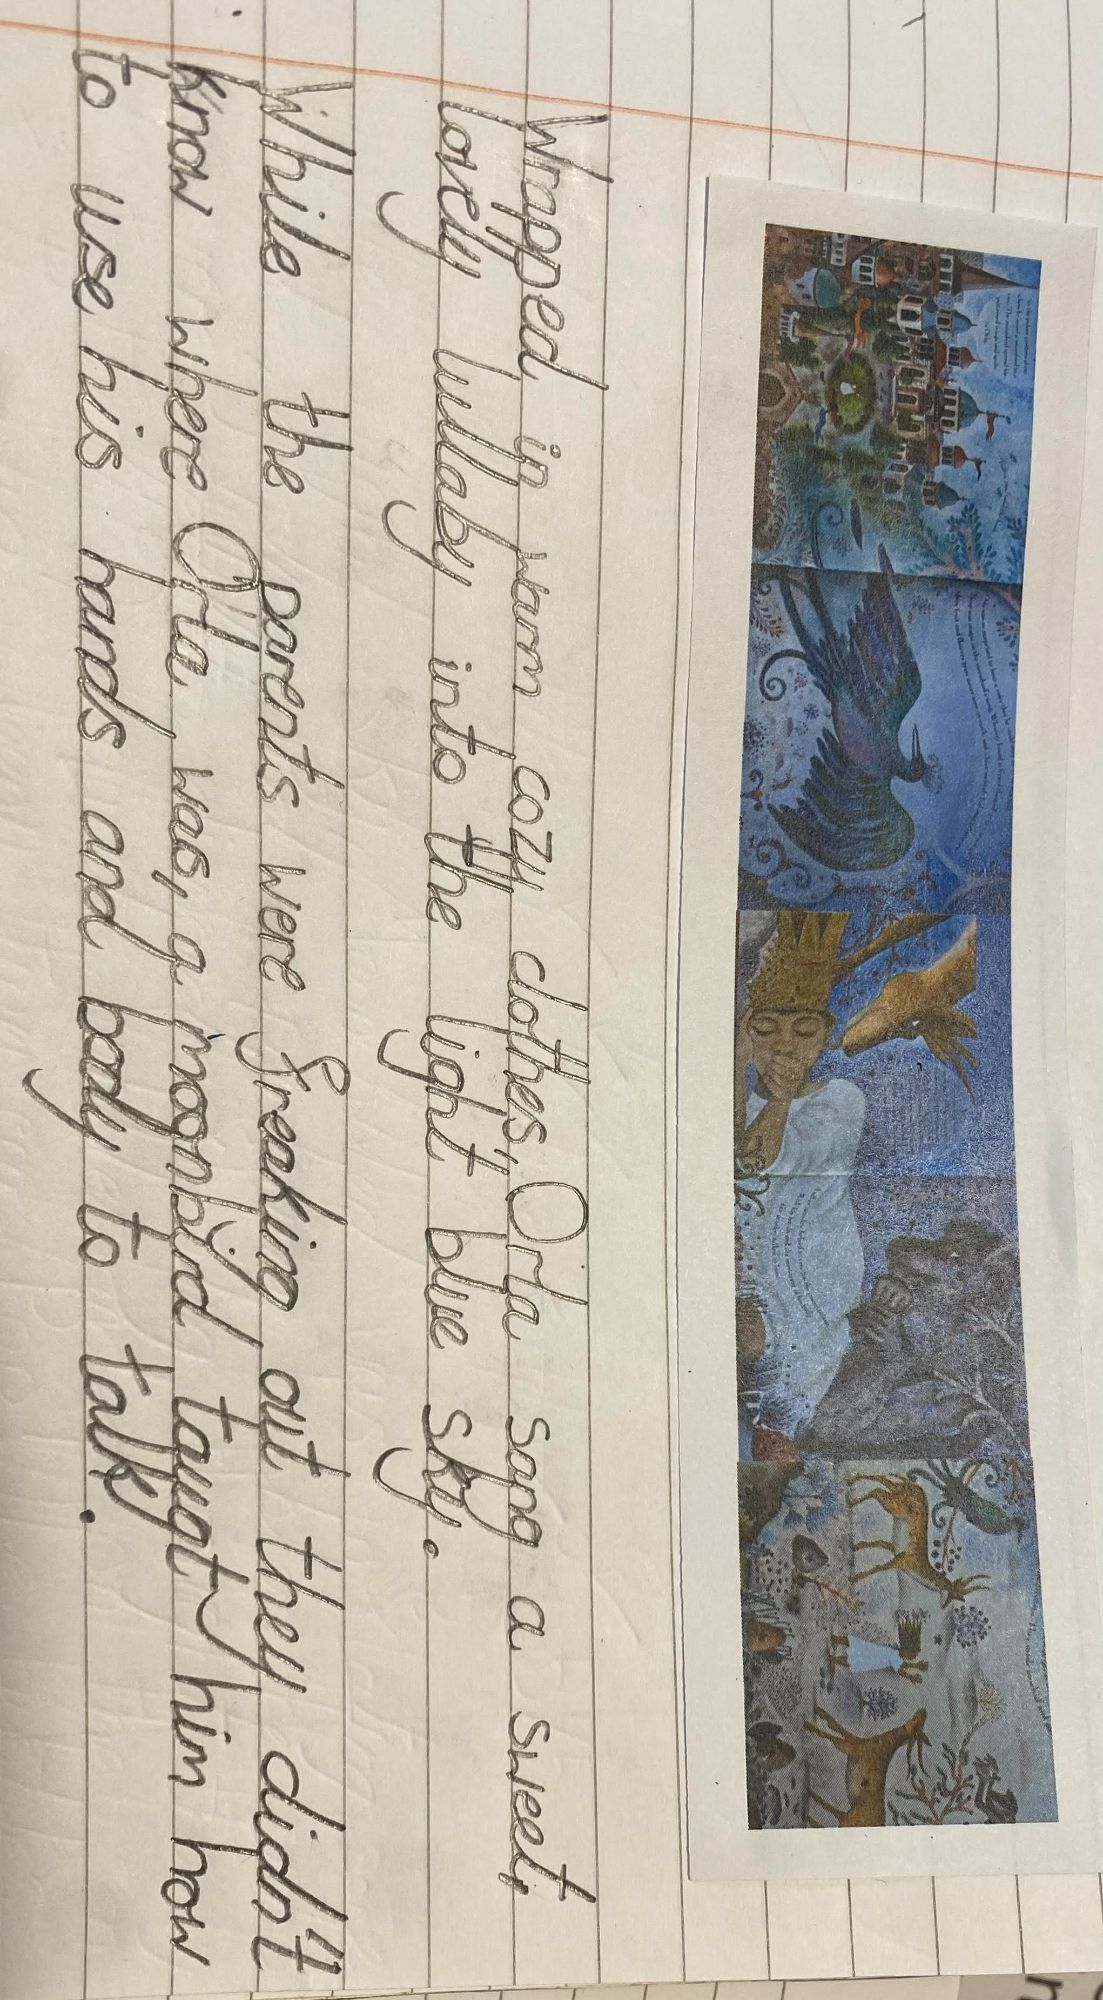 Wrapped in warm cozy clothes, Orla sang a sweet,
lovely lullaby into the light blue sky.
While the parents were freaking out they didn't
know where Orla, was, a moonbird taugt him how
to use his hands and body to talk.